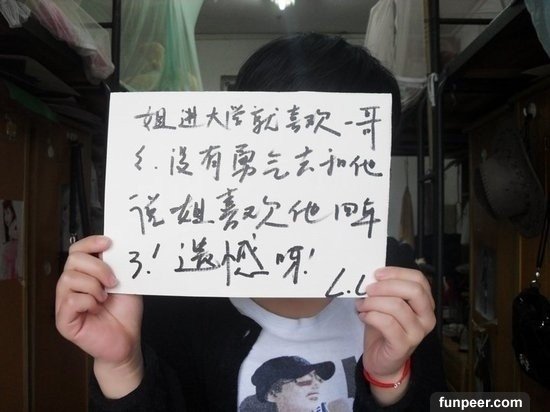 姐进大学就喜欢一哥
们.没有勇气去和他
说姐喜欢他四年
了!遗憾呀!
L.L
funpeer.com